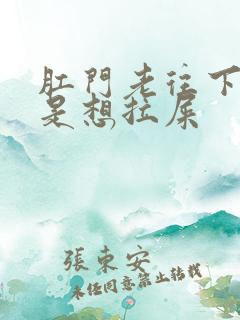 肛門老往下
是想拉屎
張東安
未经同意禁止转载